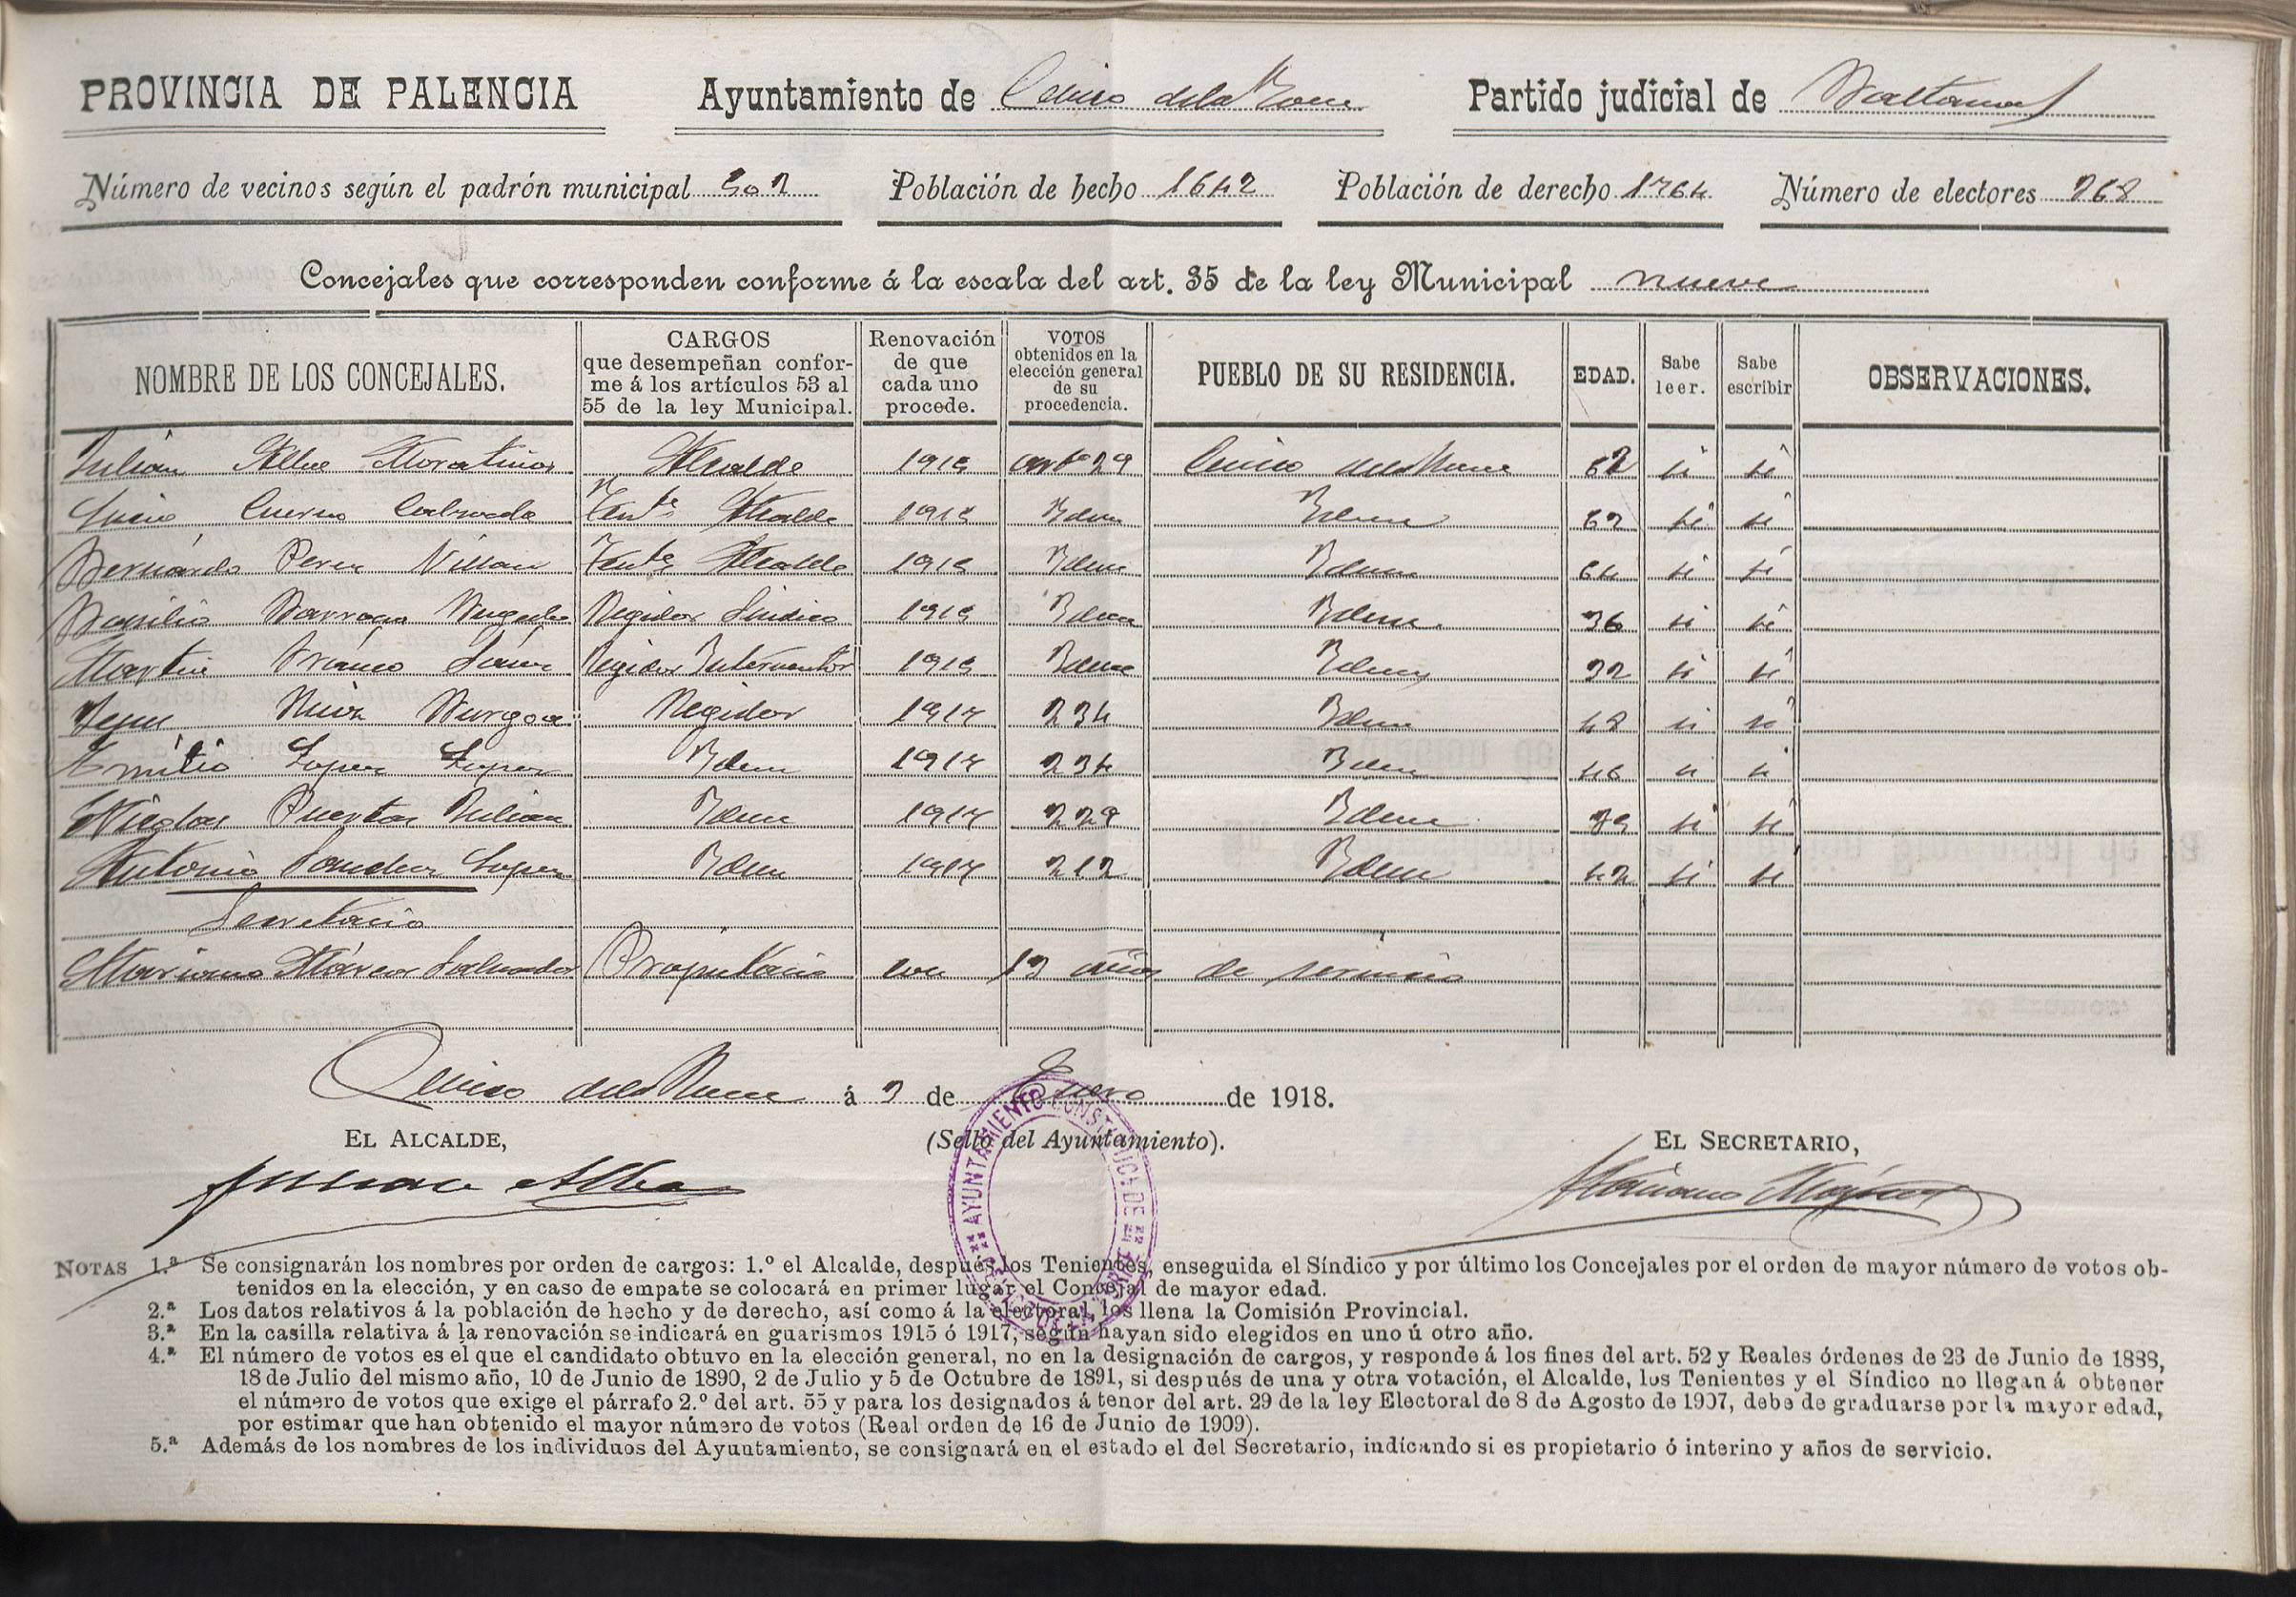 PROVINCIA DE PALENCIA Ayuntamiento de Cevico dela Torre Partido judicial de Baltanas
Número de vecinos según el padrón municipal 502 Población de hecho 1642 Población de derecho 1764 Número de electores 368
Concejales que corresponden conforme á la escala del art. 35 de la ley Municipal nueve
NOMBRE DE LOS CONCEJALES. CARGOS que desempeñan conforme á los artículos 53 al 55 de la ley Municipal. Renovación de que cada uno procede. VOTOS obtenidos en la elección general de su procedencia. PUEBLO DE SU RESIDENCIA. EDAD. Sabe leer. Sabe escribir OBSERVACIONES.
Julián Alba Moratinos Alcalde 1915 artº 29 Cevico dela Torre 62 si si
Lucio Cuervo Calzada Tente Alcalde 1915 Idem Idem 62 si si
Bernardo Perez Villan Tente Alcalde 1915 Idem Idem 64 si si
Basilio Barrasa Regidor Sindico 1915 Idem Idem. 36 si si
Martin Franco Regidor Interventor 1915 Idem Idem 32 si si
Ruiz Burgoa Regidor 1917 234 Idem 48 si si
Emilio Lopez Lopez Idem 1917 234 Idem 46 si si
Nicolas Puertas Julian Idem 1917 229 Idem 39 si si
Antonio Sanchez Lopez Idem 1917 212 Idem 42 si si
Secretario
Mariano Márcos Salvador Propietario con 13 años de servicio
Cevico dela Torre á 3 de Enero de 1918.
EL ALCALDE, (Sello del Ayuntamiento). EL SECRETARIO,
AYUNTAMIENTO CONSTITUCIONAL DE CEVICO DE LA TORRE
Julian Alba Mariano Márcos
NOTAS 1.ª Se consignarán los nombres por orden de cargos: 1.º el Alcalde, después los Tenientes, enseguida el Síndico y por último los Concejales por el orden de mayor número de votos ob-
tenidos en la elección, y en caso de empate se colocará en primer lugar el Concejal de mayor edad.
2.ª Los datos relativos á la población de hecho y de derecho, así como á la electoral, los llena la Comisión Provincial.
3.ª En la casilla relativa á la renovación se indicará en guarismos 1915 ó 1917, según hayan sido elegidos en uno ú otro año.
4.ª El número de votos es el que el candidato obtuvo en la elección general, no en la designación de cargos, y responde á los fines del art. 52 y Reales órdenes de 23 de Junio de 1888,
18 de Julio del mismo año, 10 de Junio de 1890, 2 de Julio y 5 de Octubre de 1891, si después de una y otra votación, el Alcalde, los Tenientes y el Síndico no llegan á obtener
el número de votos que exige el párrafo 2.º del art. 55 y para los designados á tenor del art. 29 de la ley Electoral de 8 de Agosto de 1907, debe de graduarse por la mayor edad,
por estimar que han obtenido el mayor número de votos (Real orden de 16 de Junio de 1909).
5.ª Además de los nombres de los individuos del Ayuntamiento, se consignará en el estado el del Secretario, indicando si es propietario ó interino y años de servicio.